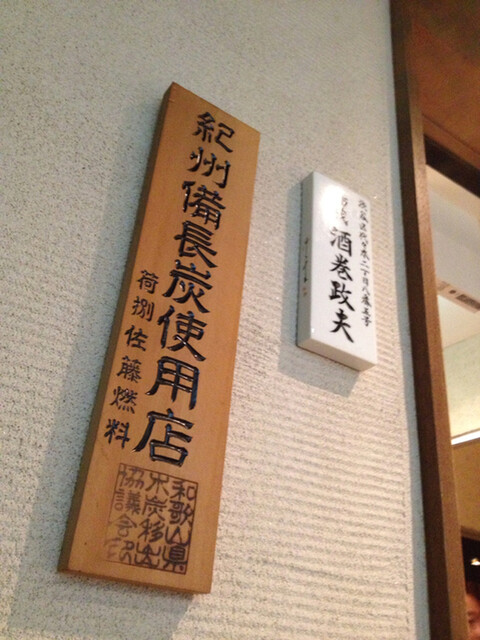 紀州備長炭使用店
荷捌 佐藤燃料
和歌山県
木炭移出
協議会印
二丁目八番五号
酒巻政夫